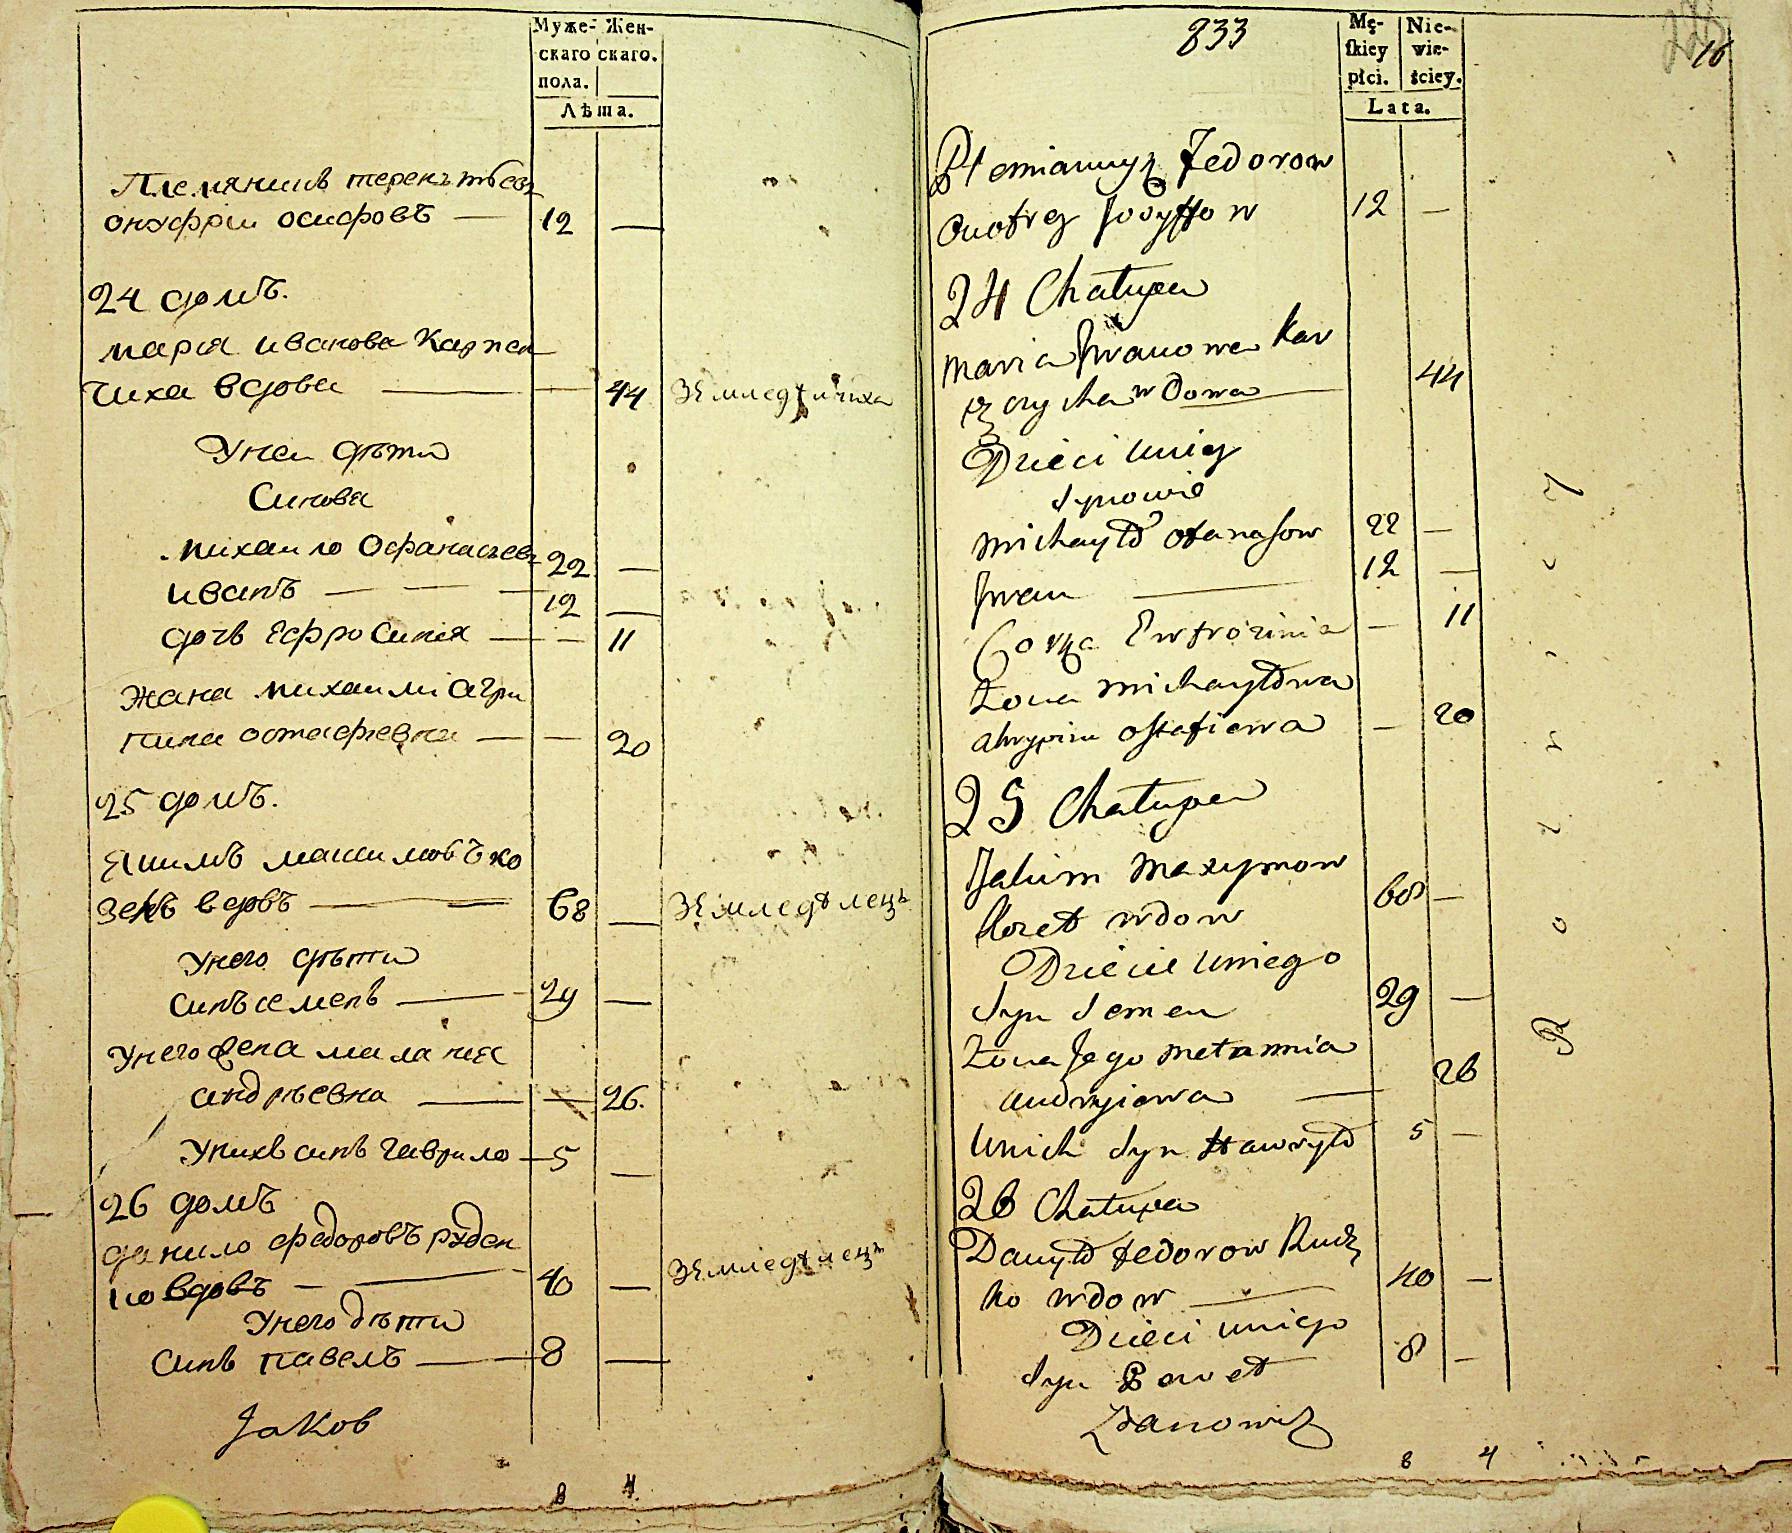 Муже- Жен-
скаго скаго.
пола.
Лѣта.
Племянникъ терентьевъ
онуфрии осифовъ — 12 —
24 домъ.
мария иванова Карпен
чиха вдова — — 44 Земледѣлчиха
Унеи дѣти
Синовя
михаило Офанасьевъ 22 —
иванъ — — — 12 —
дочь Ефросиния — — 11
Жана михаилі Агри
пина остафиевна — — 20
25 домъ.
Якимъ максимовъ ко
зелъ вдовъ — — 68 — Земледѣлецъ
Унего дѣти
синъ семенъ — 29 —
Унего жена мала ния
андрѣевна — — 26.
Унихъ синъ гаврило — 5 —
26 домъ
данило федоровъ руден
ко вдовъ — — 40 — Земледѣлецъ
Унего дѣти
синъ павелъ — 8 —
Jaков
8 4
833
16
Mę- Nie-
skiey wie-
płci. ściey.
Lata.
Plemiannyk Fedorow
Onofrey Jozyffow 12 —
24 Chałupa
Maria Iwanowa Kar
wdowa — 44
Dzieci uniey
synowie
Michayło Ofanasow 22 —
Iwan — 12 —
Corka Ewfrozinia — 11
Zona Michayłowa
Ahrypina Ostafiowa — 20
25 Chałupa
Jakim Maxymow
Kozeł wdow 68 —
Dziecie uniego
syn Semen 29 —
Zona Jego Mełannia
Andryiowa — 26
Unich syn Hawryło 5 —
26 Chałupa
Danyło Fedorow Rud
ko wdow — 40 —
Dzieci uniego
syn Paweł 8 —
Zdanowicz
8 4
Rolniсy